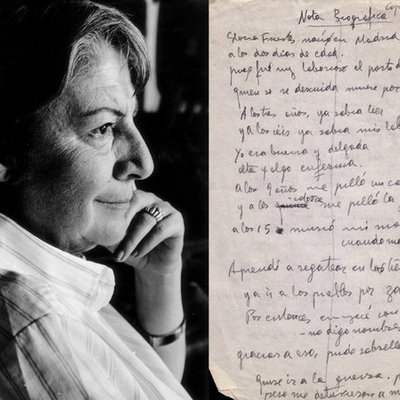 Nota Biográfica
Gloria Fuertes nació en Madrid
a los dos días de edad,
pues fue muy laborioso el parto d
quien si se descuida muere por
A los tres años, ya sabía leer
y a los seis ya sabía mis lab
Yo era buena y delgada
alta y algo enferma.
a los 9 años me pilló un ca
y a los catorce me pilló la g
a los 15 murió mi ma
cuando m
Aprendí a regatear en las tie
y a ir a los pueblos por za
Por entonces, empecé con
- no digo nombres
gracias a eso, pude sobrelle
quise ir a la guerra, p
pero me detuvieron a m